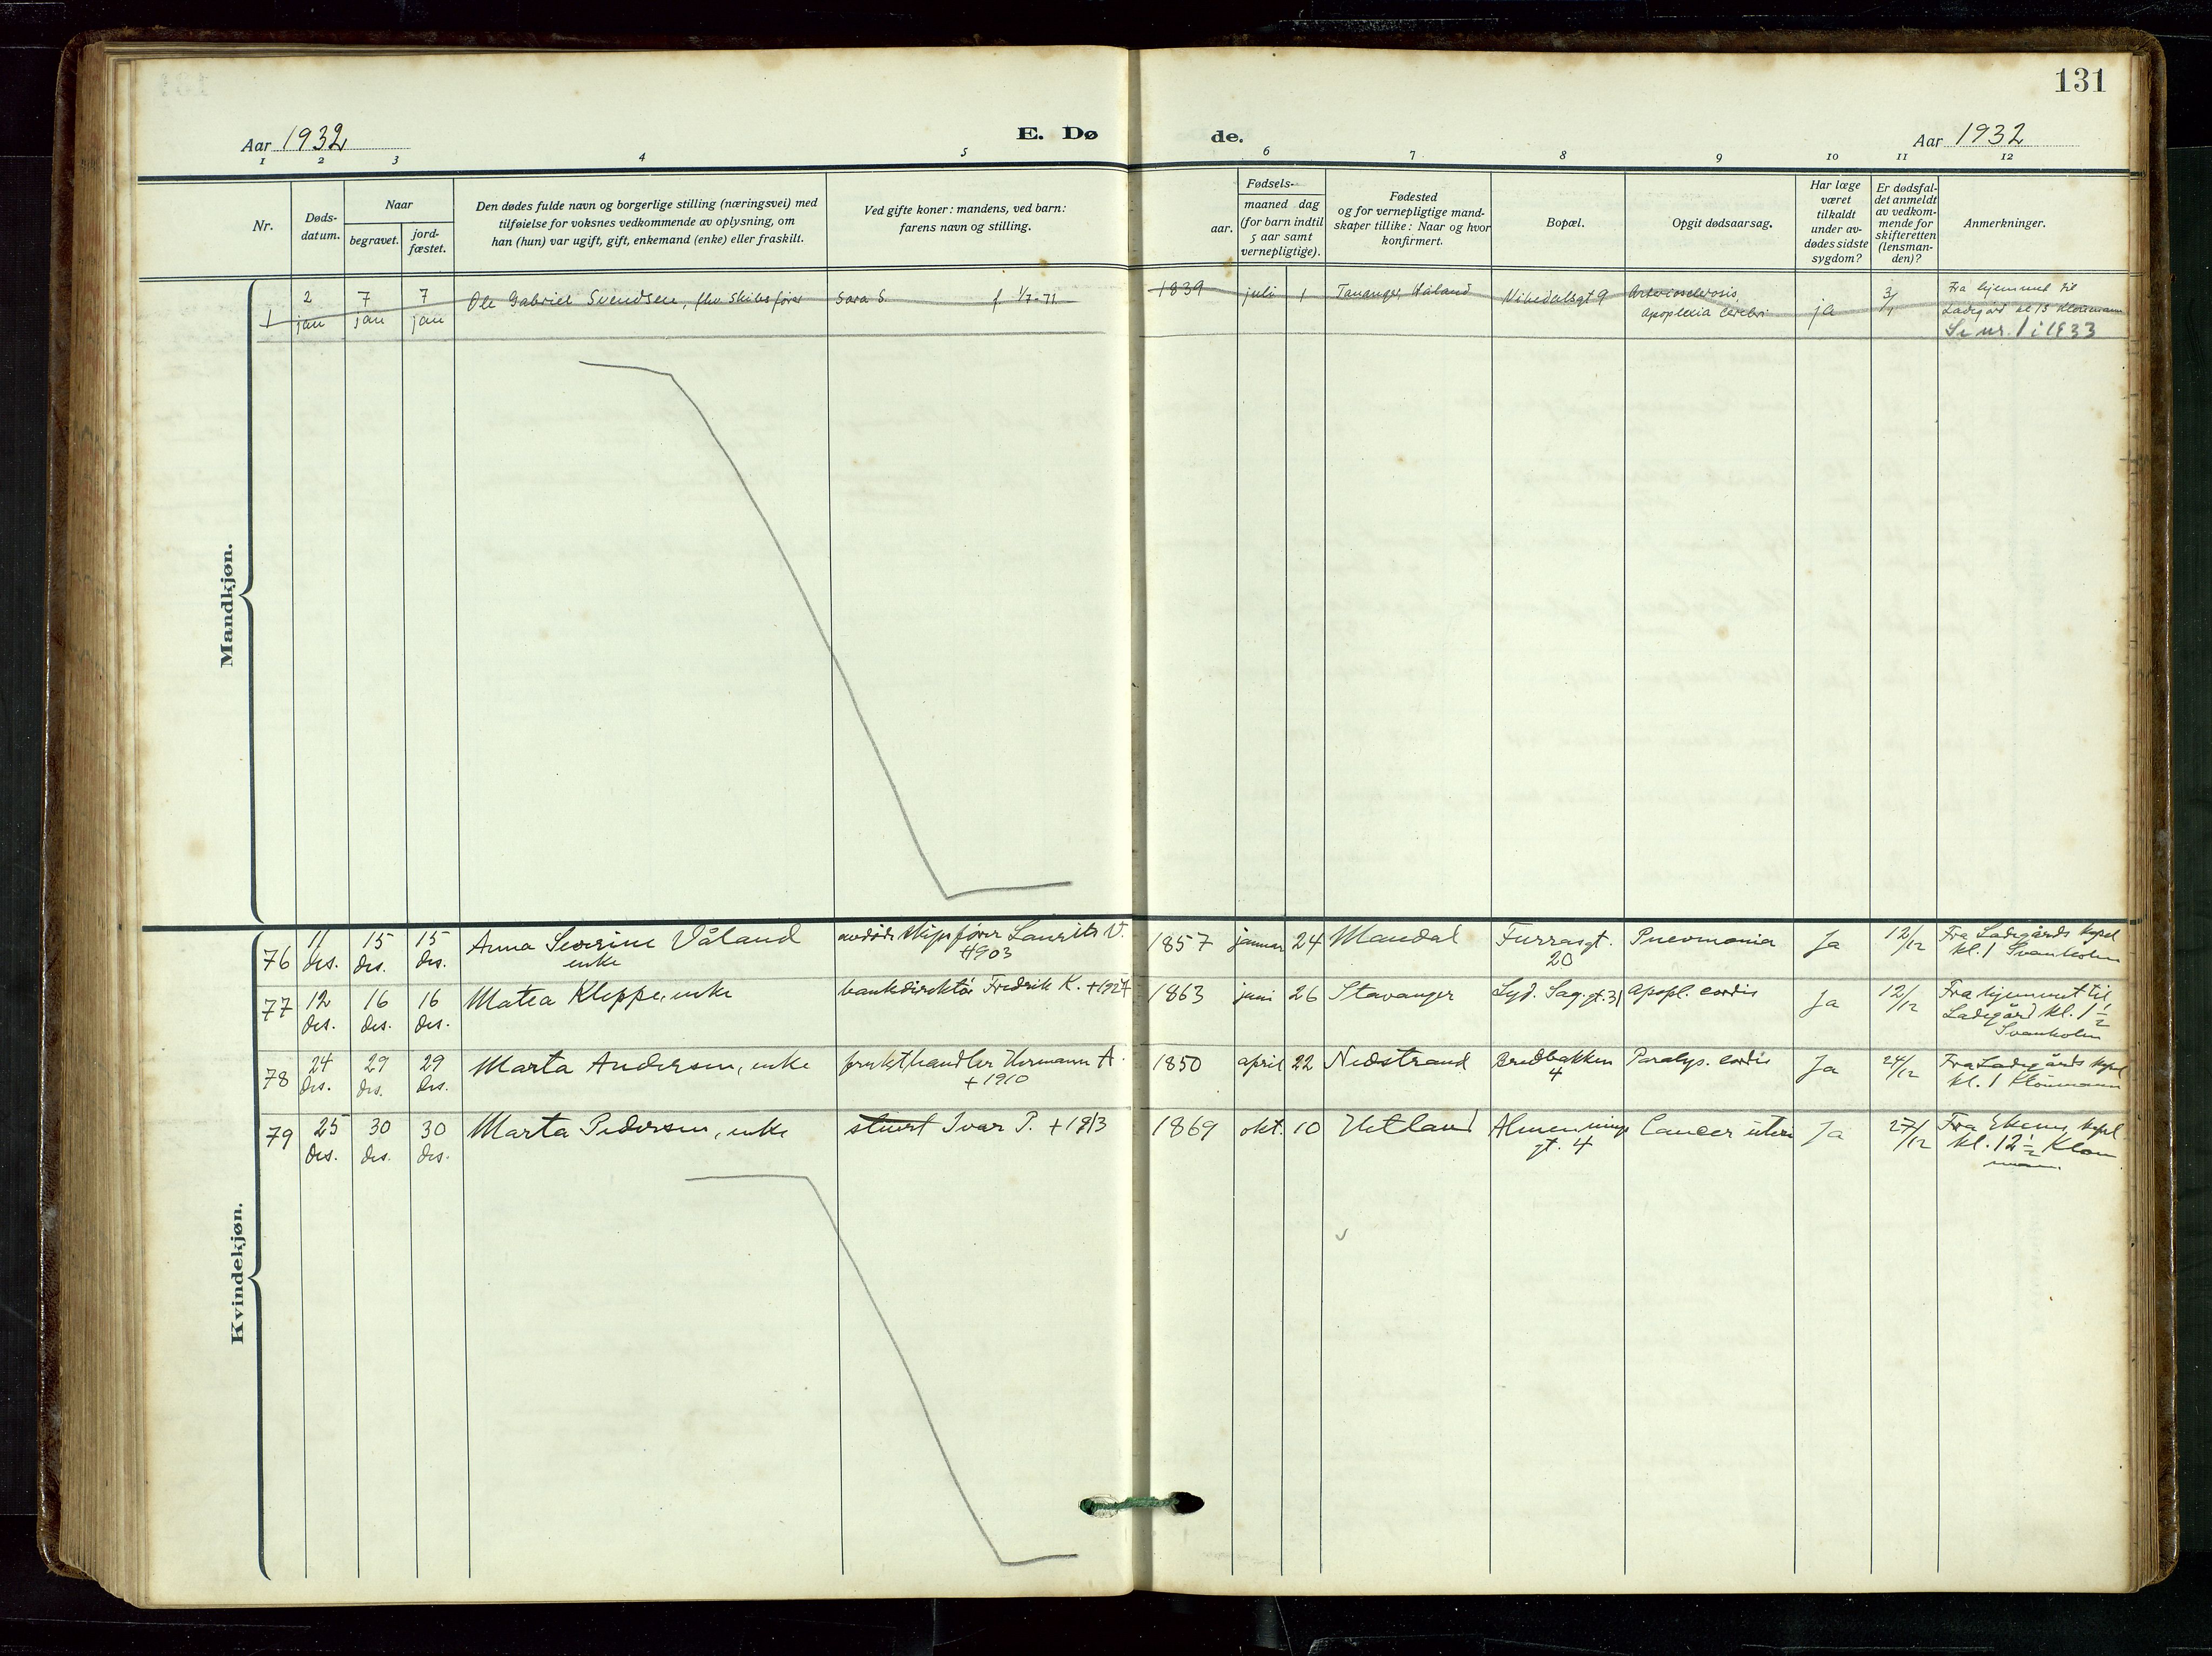 131
Aar 1932
E. Dø
de.
Aar 1932
1 2 3 4 5 6 7 8 9 10 11 12
Nr.
Døds-
datum.
Naar
begravet.
jord-
fæstet.
Den dødes fulde navn og borgerlige stilling (næringsvei) med
tilføielse for voksnes vedkommende av oplysning, om
han (hun) var ugift, gift, enkemand (enke) eller fraskilt.
Ved gifte koner: mandens, ved barn:
farens navn og stilling.
aar.
Fødsels-
maaned dag
(for barn indtil
5 aar samt
vernepligtige).
Fødested
og for vernepligtige mand-
skaper tillike: Naar og hvor
konfirmert.
Bopæl.
Opgit dødsaarsag.
Har læge
været
tilkaldt
under av-
dødes sidste
sygdom?
Er dødsfal-
det anmeldt
av vedkom-
mende for
skifteretten
(lensman-
den)?
Anmerkninger.
Mandkjøn.
1
2
jan
7
jan
7
jan
Ole Gabriel Svendsen, fhv skibsfører
Sara S. f 1/7-71
1839
juli
1
Tananger, Håland
Nikedalsgt 9
Arteriosclerosis
apoplexia cerebri
ja
3/1
Fra hjemmet til
Ladegård kl 13 Klouman
Se nr. 1 i 1933
Kvindekjøn.
76
11
des.
15
des.
15
des.
Anna Severine Våland
enke
avdøde skipsfører Laurits V.
+1903
1857
januar
24
Mandal
Furrasgt.
20
Pneumonia
Ja
12/12
Fra Ladegårds kapel
kl. 1 Svanholm
77
12
des.
16
des.
16
des.
Matea Kleppe, enke
bankdirektør Fredrik K. +1927
1863
juni
26
Stavanger
Lyd. Sag. gt. 31
apopl. cordis
Ja
12/12
Fra hjemmet til
Ladegård kl. 1 1/2
Svanholm
78
24
des.
29
des.
29
des.
Marta Andersen, enke
frukthandler Hermann A.
+1910
1850
april
22
Nedstrand
Bredbakken
4
Paralys. cordis
Ja
24/12
Fra Ladegårds kapel
kl. 1 Kloumann
79
25
des.
30
des.
30
des.
Marta Pedersen, enke
stuert Ivar P. +1913
1869
okt.
10
Hetland
Almennings
gt. 4
Cancer uteri
Ja
27/12
Fra kapel
kl. 12 1/2 Klou
mann